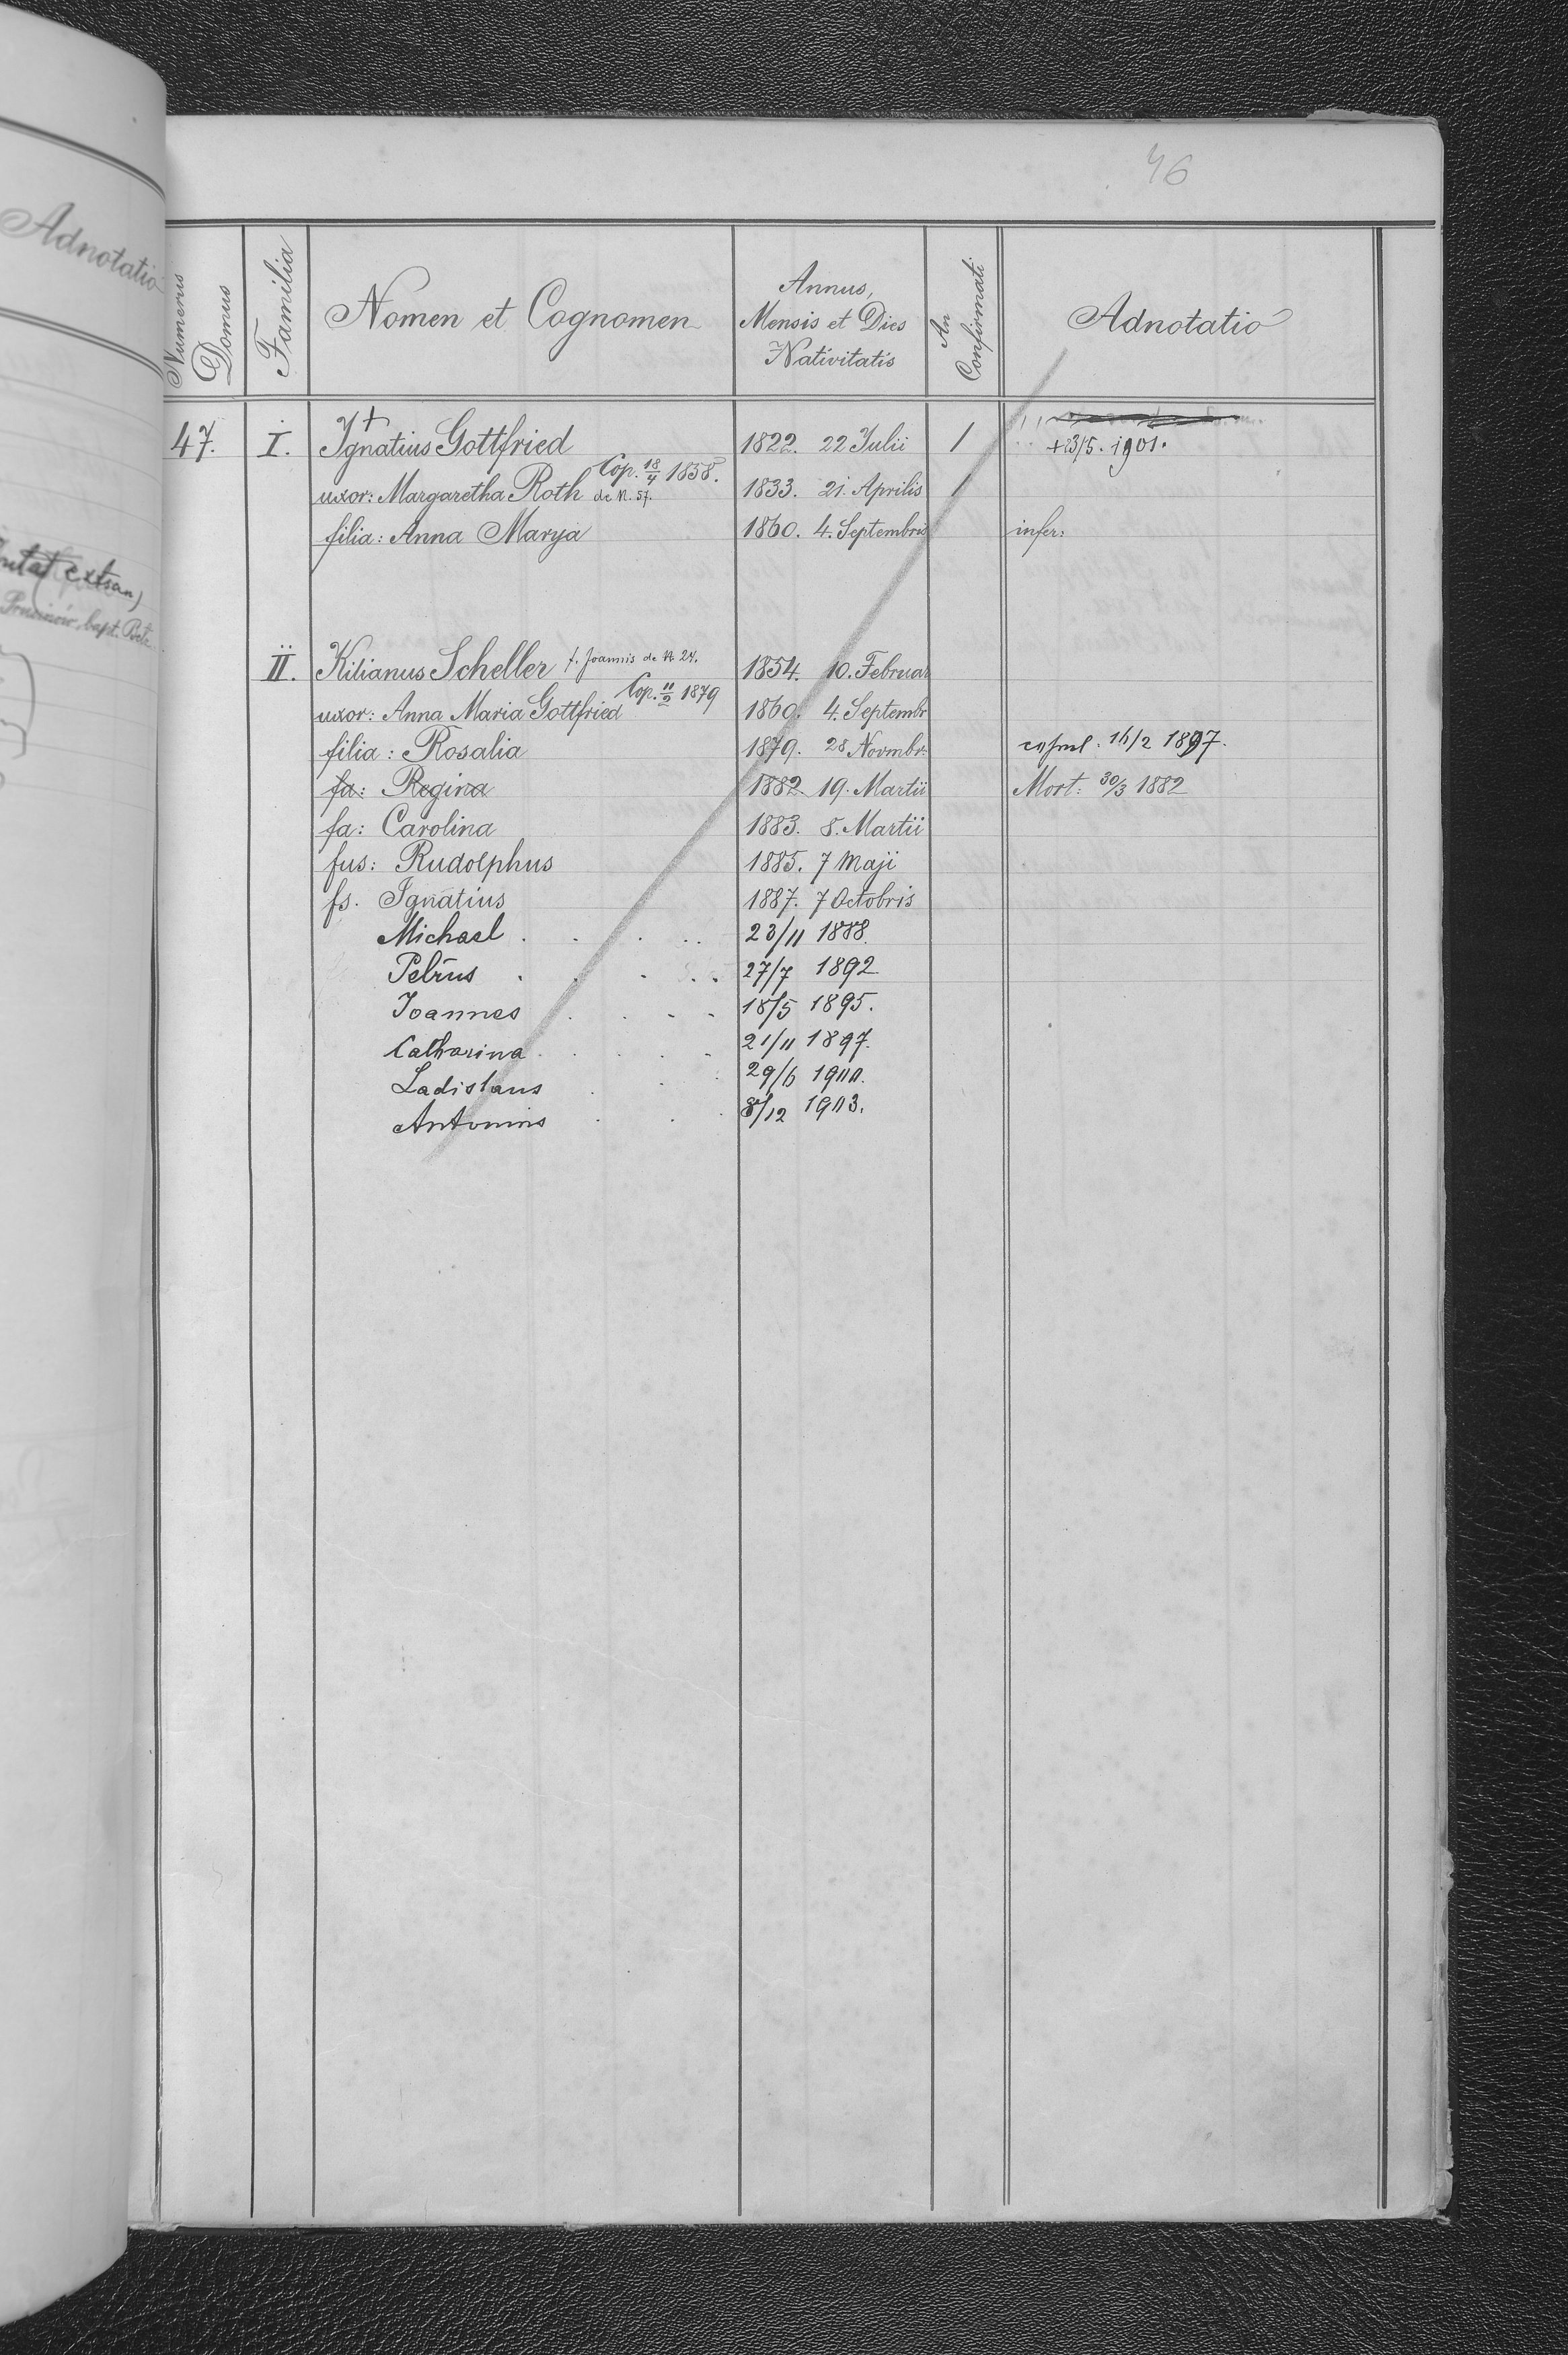 46
Adnotatio
Numerus Domus
Familia
Nomen et Cognomen
Annus,
Mensis et Dies
Nativitatis
An Confirmati
Adnotatio
47. I. Ignatius Gottfried + 1822. 22 Julii 1 +23/5. 1901.
Cop. 18/4 1858.
uxor: Margaretha Roth de N. 57. 1833. 21. Aprilis 1
filia: Anna Marya 1860. 4. Septembris infer:
extran)
bapt.
II. Kilianus Scheller f. Joannis de N. 24. 1854. 10. Februar
Cop. 11/2 1879
uxor: Anna Maria Gottfried 1860. 4. Septembr
filia: Rosalia 1879. 28 Novmbr. copul: 16/2 1897.
fa: Regina 1882. 19. Martii Mort: 30/3 1882
fa: Carolina 1883. 8. Martii
fus: Rudolphus 1885. 7 Maji
fs. Ignatius 1887. 7 Octobris
Michael . . . . . 23/11 1888.
Petrus . . . . . 27/7 1892
Joannes . . . . 18/5 1895.
Catharina . . . . . 21/11 1897.
Ladislaus . . . 29/6 1900.
Antonius . . . 8/12 1903.